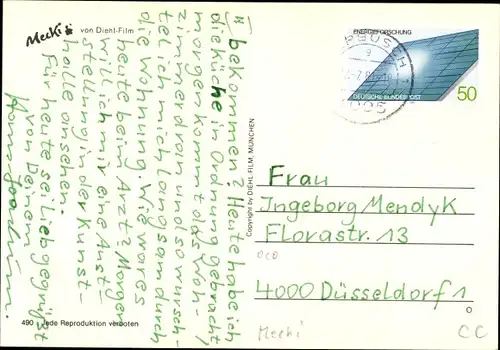 Mecki von Diehl-Film
bekommen? Heute habe ich
die Küche in Ordnung gebracht,
morgen kommt das Wohn-
zimmer dran und so wursch-
tel ich mich langsam durch
die Wohnung. Wie war es
heute beim Arzt? Morgen
will ich mir eine Aust-
stellung in der Kunst-
halle ansehen.
Für heute sei lieb gegrüßt
von Deinem
Hansjoachim.
490 Jede Reproduktion verboten
Copyright by DIEHL-FILM, MÜNCHEN
ENERGIEFORSCHUNG
DEUTSCHE BUNDESPOST
50
Frau
Ingeborg Mendyk
Florastr. 13
4000 Düsseldorf 1
Mecki
CC